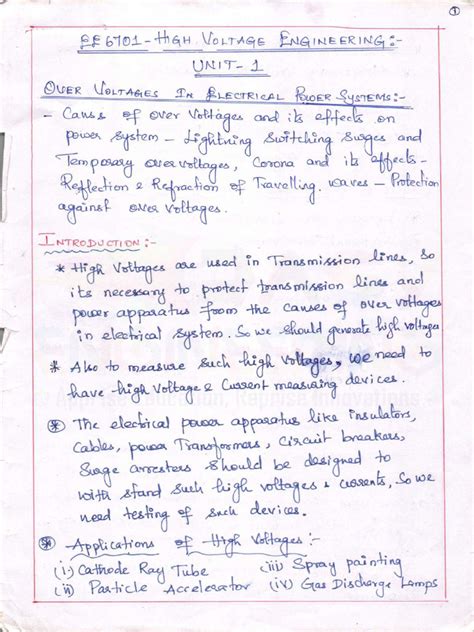 ①
EE6701 - HIGH VOLTAGE ENGINEERING:-
UNIT-1
OVER VOLTAGES IN ELECTRICAL POWER SYSTEMS:-
- Causes of over voltages and its effects on
power system - Lightning Switching Surges and
Temporary over voltages, Corona and its effects -
Reflection & Refraction of Travelling waves - Protection
against over voltages.
INTRODUCTION:-
* High Voltages are used in Transmission lines, So
its necessary to protect transmission lines and
power apparatus from the causes of over voltages
in electrical system. So we should generate high voltages
* Also to measure such high voltages, we need to
have high voltage & current measuring devices.
* The electrical power apparatus like insulators,
Cables, power Transformers, Circuit breakers,
Surge arresters should be designed to
with stand such high voltages & currents, So we
need testing of such devices.
* Applications of High Voltages:-
(i) Cathode Ray Tube (iii) Spray painting
(ii) Particle Accelerator (iv) Gas Discharge Lamps